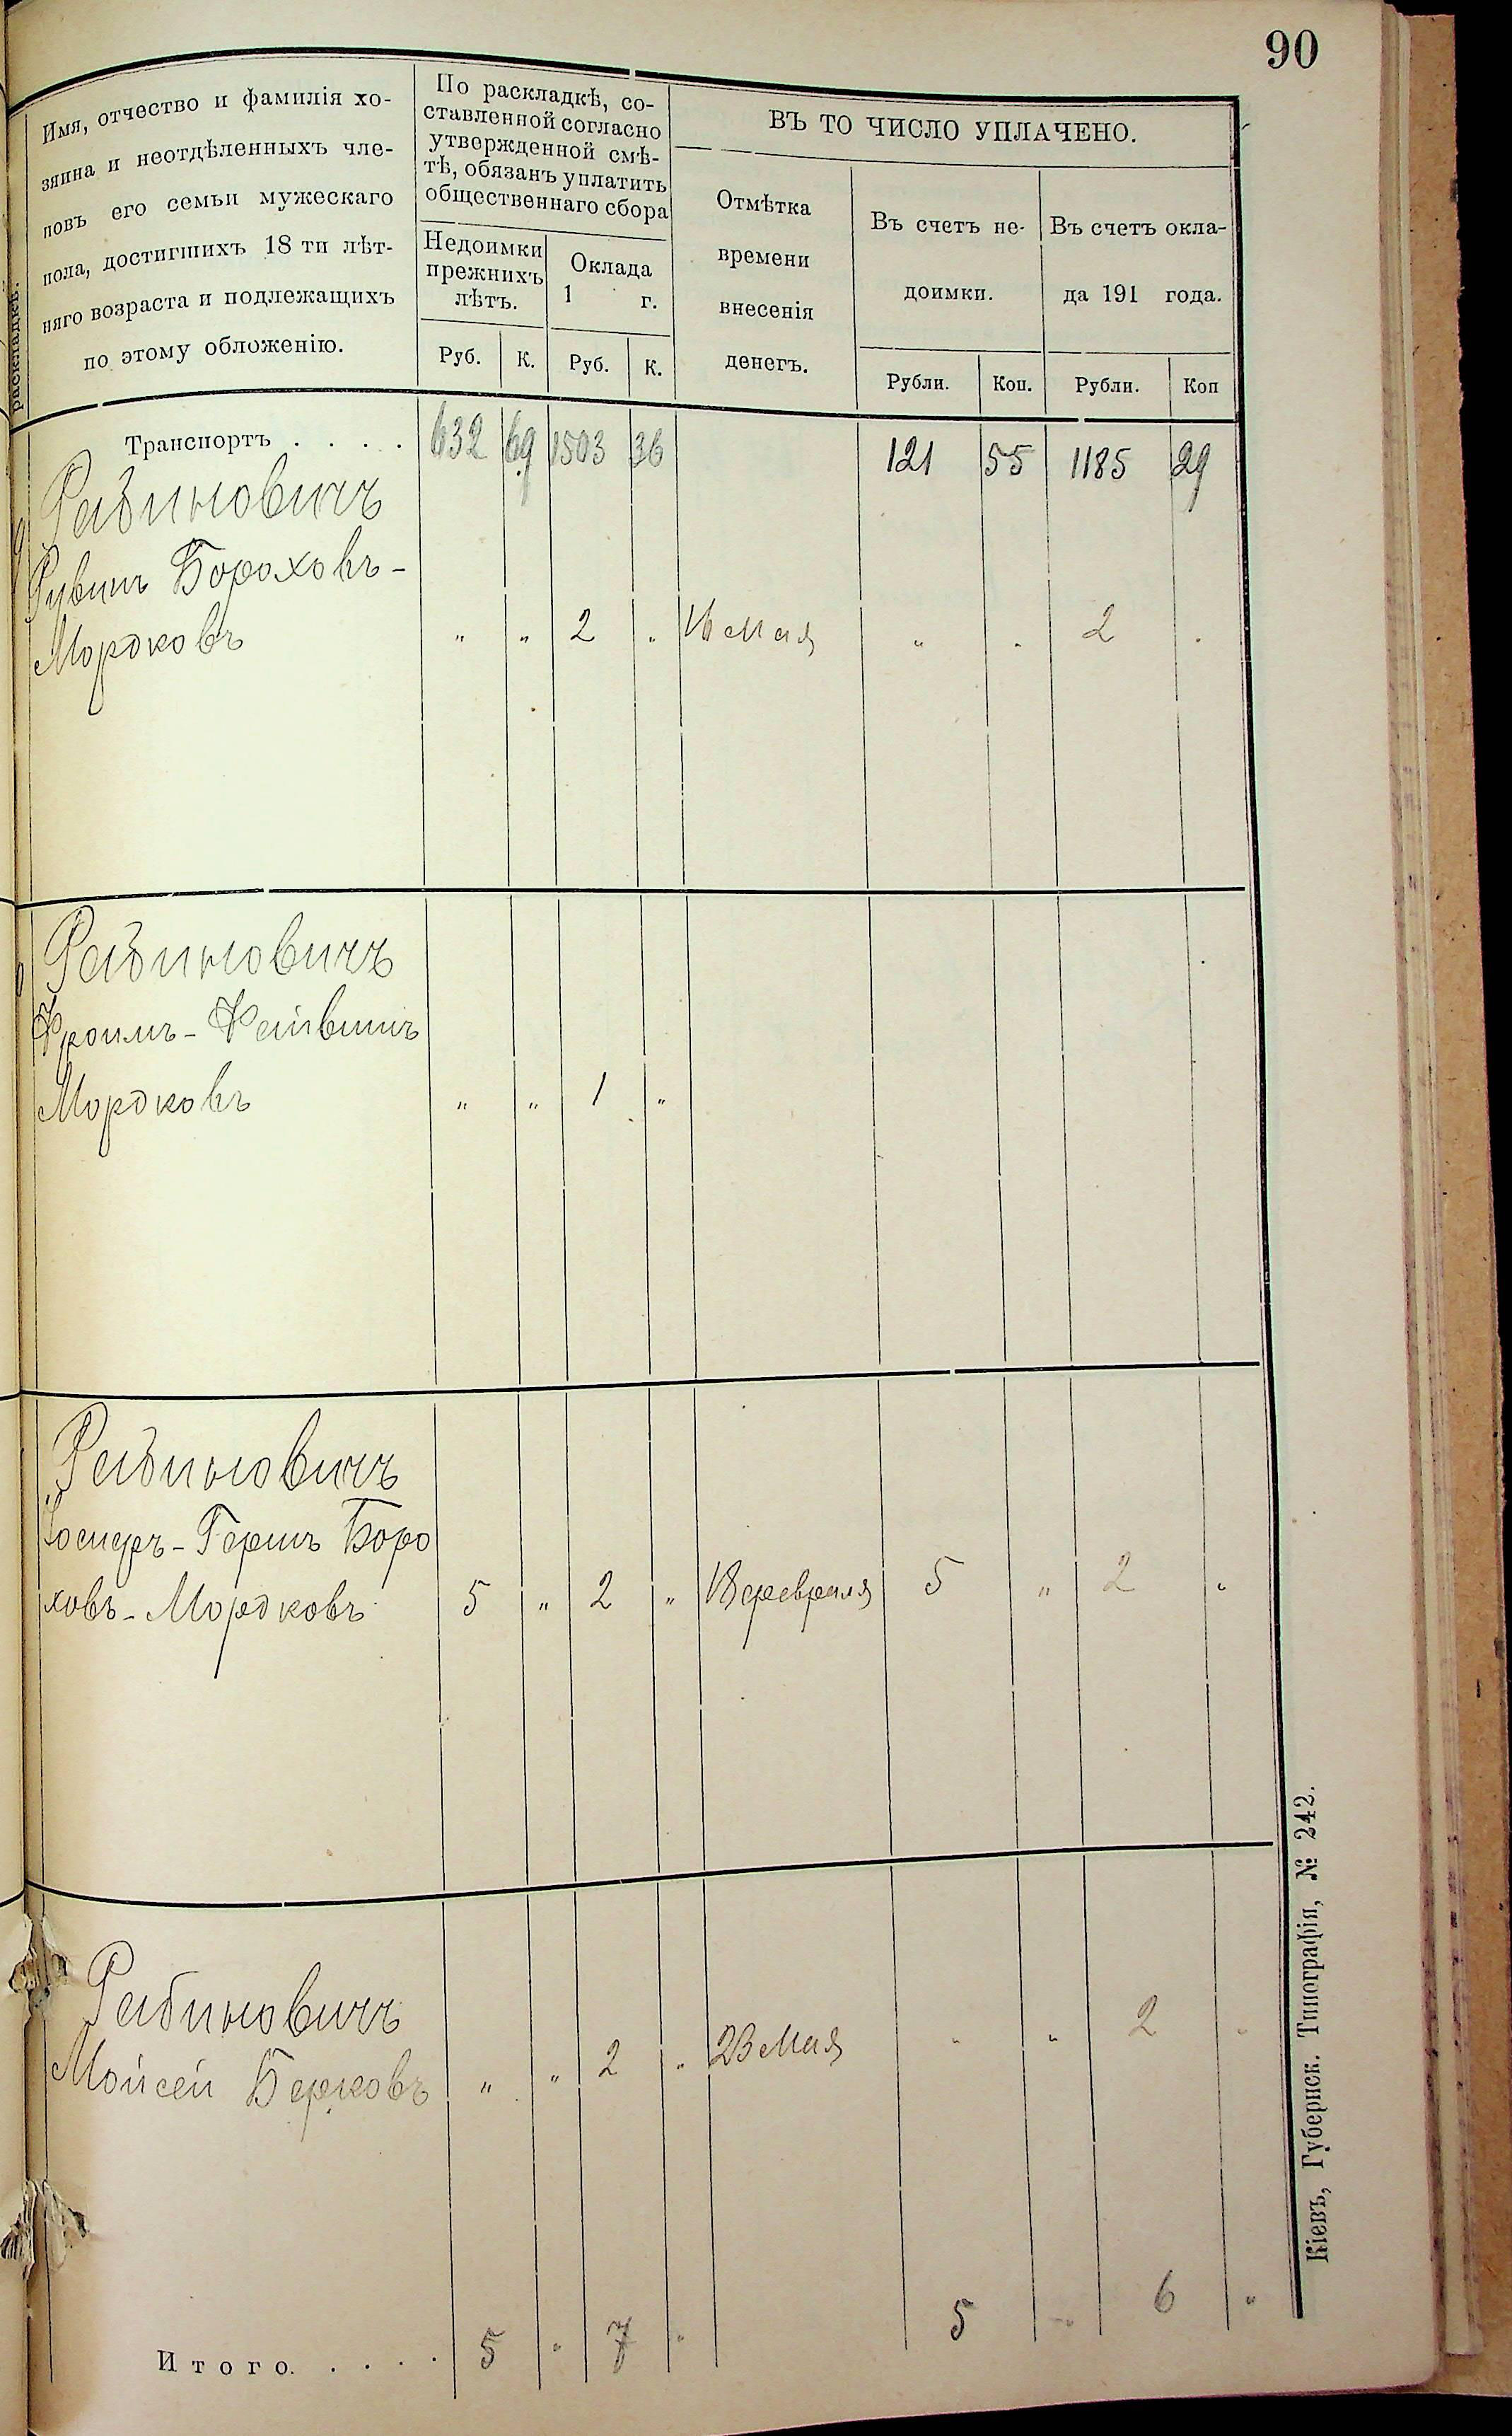 90
Имя, отчество и фамилія хо-
зяина и неотдѣленныхъ чле-
новъ его семьи мужескаго
пола, достигшихъ 18 ти лѣт-
няго возраста и подлежащихъ
по этому обложенію.
По раскладкѣ, со-
ставленной согласно
утвержденной смѣ-
тѣ, обязанъ уплатить
общественнаго сбора
Недоимки
прежнихъ
лѣтъ.
Оклада
1 г.
Руб. К. Руб. К.
ВЪ ТО ЧИСЛО УПЛАЧЕНО.
Отмѣтка
времени
внесенія
денегъ.
Въ счетъ не-
доимки.
Въ счетъ окла-
да 191 года.
Рубли. Коп. Рубли. Коп
раскладкѣ.
Транспортъ . . . . 632 69 1503 36 121 55 1185 29
Рабиновичъ
Рувинъ Бороховъ-
Мордковъ " " 2 " 16 мая " " 2 "
Рабиновичъ
Фроимъ-Файвишъ
Мордковъ " " 1 "
Рабиновичъ
Іосифъ-Гершъ Боро
ховъ-Мордковъ 5 " 2 " 18 февраля 5 " 2 "
Рабиновичъ
Мойсей Берковъ " " 2 " 23 Мая " " 2 "
Итого. . . . . 5 " 7 " 5 " 6 "
Кіевъ, Губернск. Типографія, № 242.